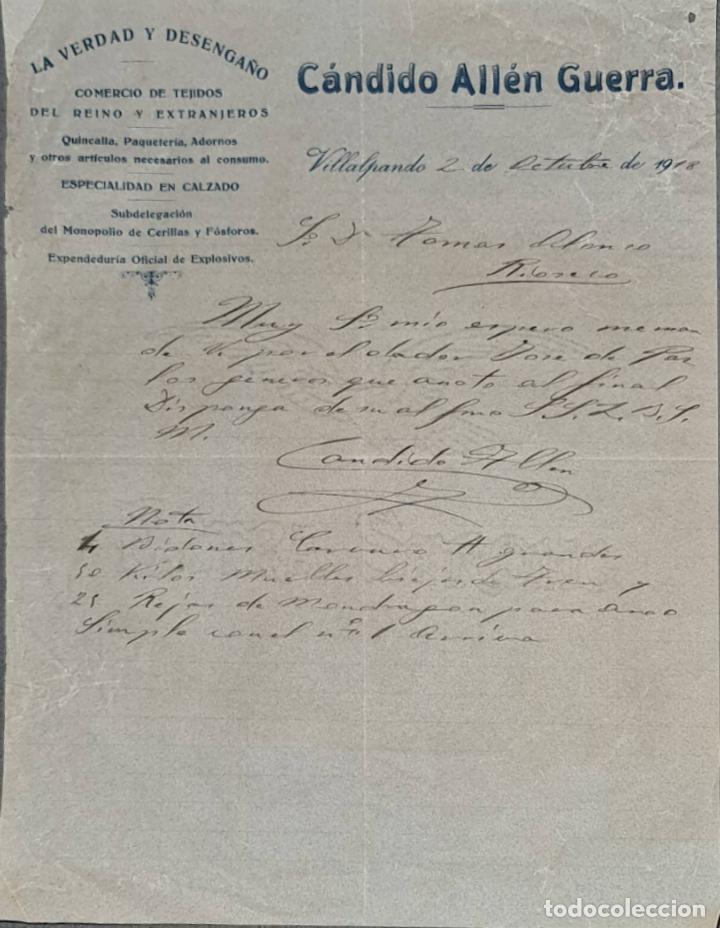 LA VERDAD Y DESENGAÑO
COMERCIO DE TEJIDOS
DEL REINO Y EXTRANJEROS
Quincalla, Paquetería, Adornos
y otros artículos necesarios al consumo.
ESPECIALIDAD EN CALZADO
Subdelegación
del Monopolio de Cerillas y Fósforos.
Expendeduría Oficial de Explosivos.
Cándido Allén Guerra.
Villalpando 2 de Octubre de 1918
Sr Dn Tomas Alonso
Rioseco
Muy Sr mio espero me man
de V. por el dador Jose de Paz
los generos que anoto al final
Disponga de su af
M.
Candido Allen
Nota
4 Bidones Carburo grandes
50 Kilos Muelles biejos de Tren y
25 Rejas de Mondragon para
Simple con el nº 1
todocoleccion